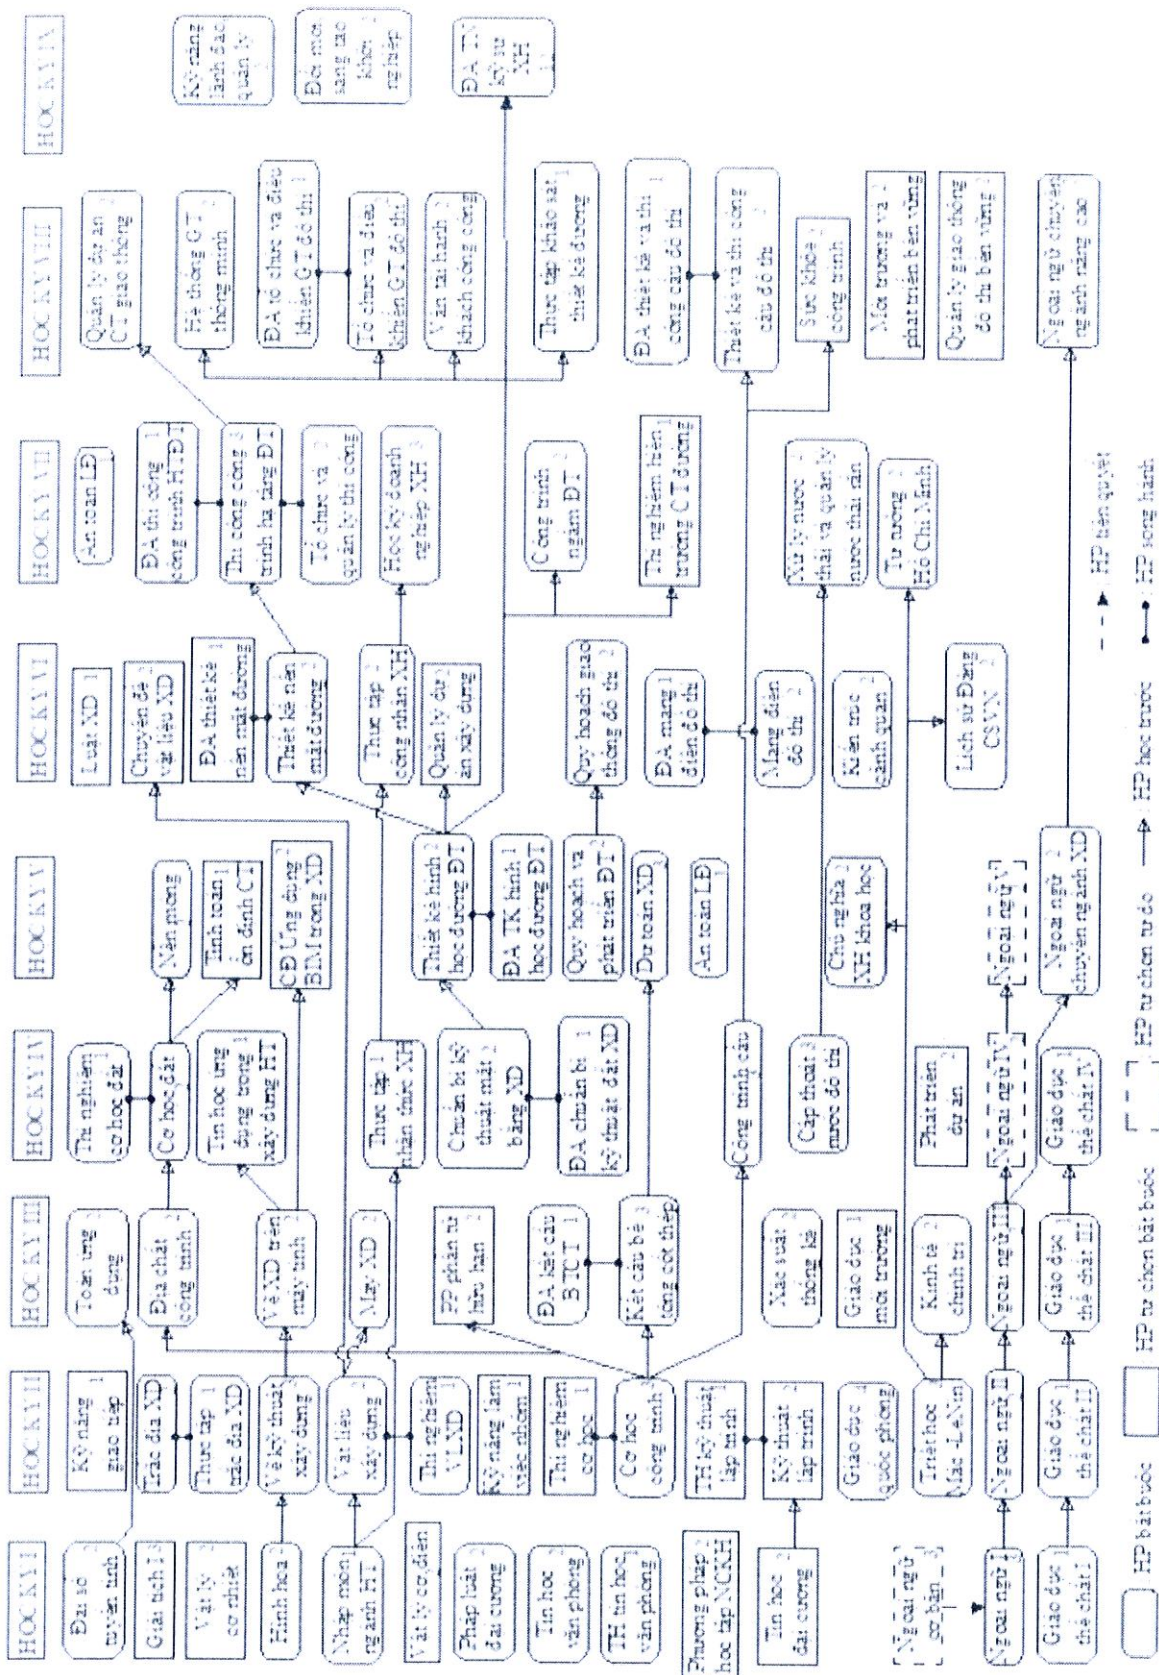 HỌC KỲ I
Đại số 2
tuyến tính
Giải tích I 3
Vật lý 2
cơ nhiệt
Hình họa 2
Nhập môn 1
ngành HT
Vật lý cơ điện
Pháp luật 2
đại cương
Tin học 2
văn phòng
TH tin học 1
văn phòng
Phương pháp
học tập NCKH
Tin học 2
đại cương
Ngoại ngữ
cơ bản 3
Ngoại ngữ I
Giáo dục 1
thể chất I
HỌC KỲ II
Kỹ năng
giao tiếp 1
Trắc địa XD 2
Thực tập 1
trắc địa XD
Vẽ kỹ thuật 2
xây dựng
Vật liệu 2
xây dựng
Thí nghiệm 1
VLXD
Kỹ năng làm
việc nhóm 1
Thí nghiệm 1
cơ học
Cơ học
công trình 3
TH kỹ thuật 1
lập trình
Kỹ thuật 2
lập trình
Giáo dục
quốc phòng
Triết học 3
Mác -LêNin
Ngoại ngữ II
Giáo dục 1
thể chất II
HỌC KỲ III
Toán ứng 2
dụng
Địa chất 2
công trình
Vẽ XD trên 2
máy tính
Máy XD 2
PP phần tử
hữu hạn 2
ĐA kết cấu
BTCT 1
Kết cấu bê 3
tông cốt thép
Xác suất 2
thống kê
Giáo dục
môi trường
Kinh tế 2
chính trị
Ngoại ngữ III
Giáo dục 1
thể chất III
HỌC KỲ IV
Thí nghiệm
cơ học đất 1
Cơ học đất
Tin học ứng
dụng trong 1
xây dựng HT
Thực tập 1
nhận thức XH
Chuẩn bị kỹ
thuật mặt 2
bằng XD
ĐA chuẩn bị 1
kỹ thuật đất XD
Công trình cầu
Cấp thoát 3
nước đô thị
Phát triển
dự án 2
Ngoại ngữ IV
Giáo dục 1
thể chất IV
HỌC KỲ V
Nền móng 2
Tính toán 1
ổn định CT
CĐ Ứng dụng 2
BIM trong XD
Thiết kế hình 2
học đường ĐT
ĐA TK hình 1
học đường ĐT
Quy hoạch và
phát triển ĐT 2
Dự toán XD
An toàn LĐ
Chủ nghĩa 2
XH khoa học
Ngoại ngữ V
Ngoại ngữ 2
chuyên ngành XD
HỌC KỲ VI
Luật XD 2
Chuyên đề 2
vật liệu XD
ĐA thiết kế 1
nền mặt đường
Thiết kế nền
mặt đường 2
Thực tập 2
công nhân XH
Quản lý dự 2
án xây dựng
Quy hoạch giao
thông đô thị 2
ĐA mạng 1
điện đô thị
Mạng điện
đô thị 2
Kiến trúc
cảnh quan 2
Lịch sử Đảng
CSVN 2
HỌC KỲ VII
An toàn LĐ
ĐA thi công 1
công trình HTĐT
Thi công công 3
trình hạ tầng ĐT
Tổ chức và 2
quản lý thi công
Học kỳ doanh
nghiệp XH 3
Công trình
ngầm ĐT 2
Thí nghiệm hiện 1
trường CT đường
Xử lý nước
thải và quản lý 2
nước thải rắn
Tư tưởng 2
Hồ Chí Minh
HỌC KỲ VIII
Quản lý dự án 2
CT giao thông
Hệ thống GT 2
thông minh
ĐA tổ chức và điều
khiển GT đô thị 1
Tổ chức và điều
khiển GT đô thị 2
Vận tải hành 2
khách công cộng
Thực tập khảo sát
thiết kế đường 1
ĐA thiết kế và thi
công cầu đô thị 1
Thiết kế và thi công
cầu đô thị 2
Sức khỏe 2
công trình
Môi trường và 2
phát triển bền vững
Quản lý giao thông
đô thị bền vững 2
Ngoại ngữ chuyên
ngành nâng cao 2
HỌC KỲ IX
Kỹ năng
lãnh đạo,
quản lý 2
Đổi mới
sáng tạo
khởi 2
nghiệp
ĐA TN
kỹ sư
XH
HP bắt buộc
HP tự chọn bắt buộc
HP tự chọn tự do
: HP học trước
: HP tiên quyết
: HP song hành